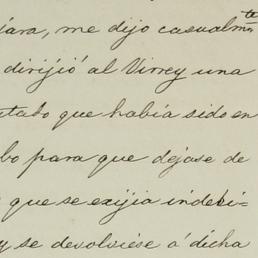 jara, me dijo casualmte
dirijió al Virrey una
tado que había sido en
bo para que dejase de
que se exijia indebi=
y se devolviése á dicha